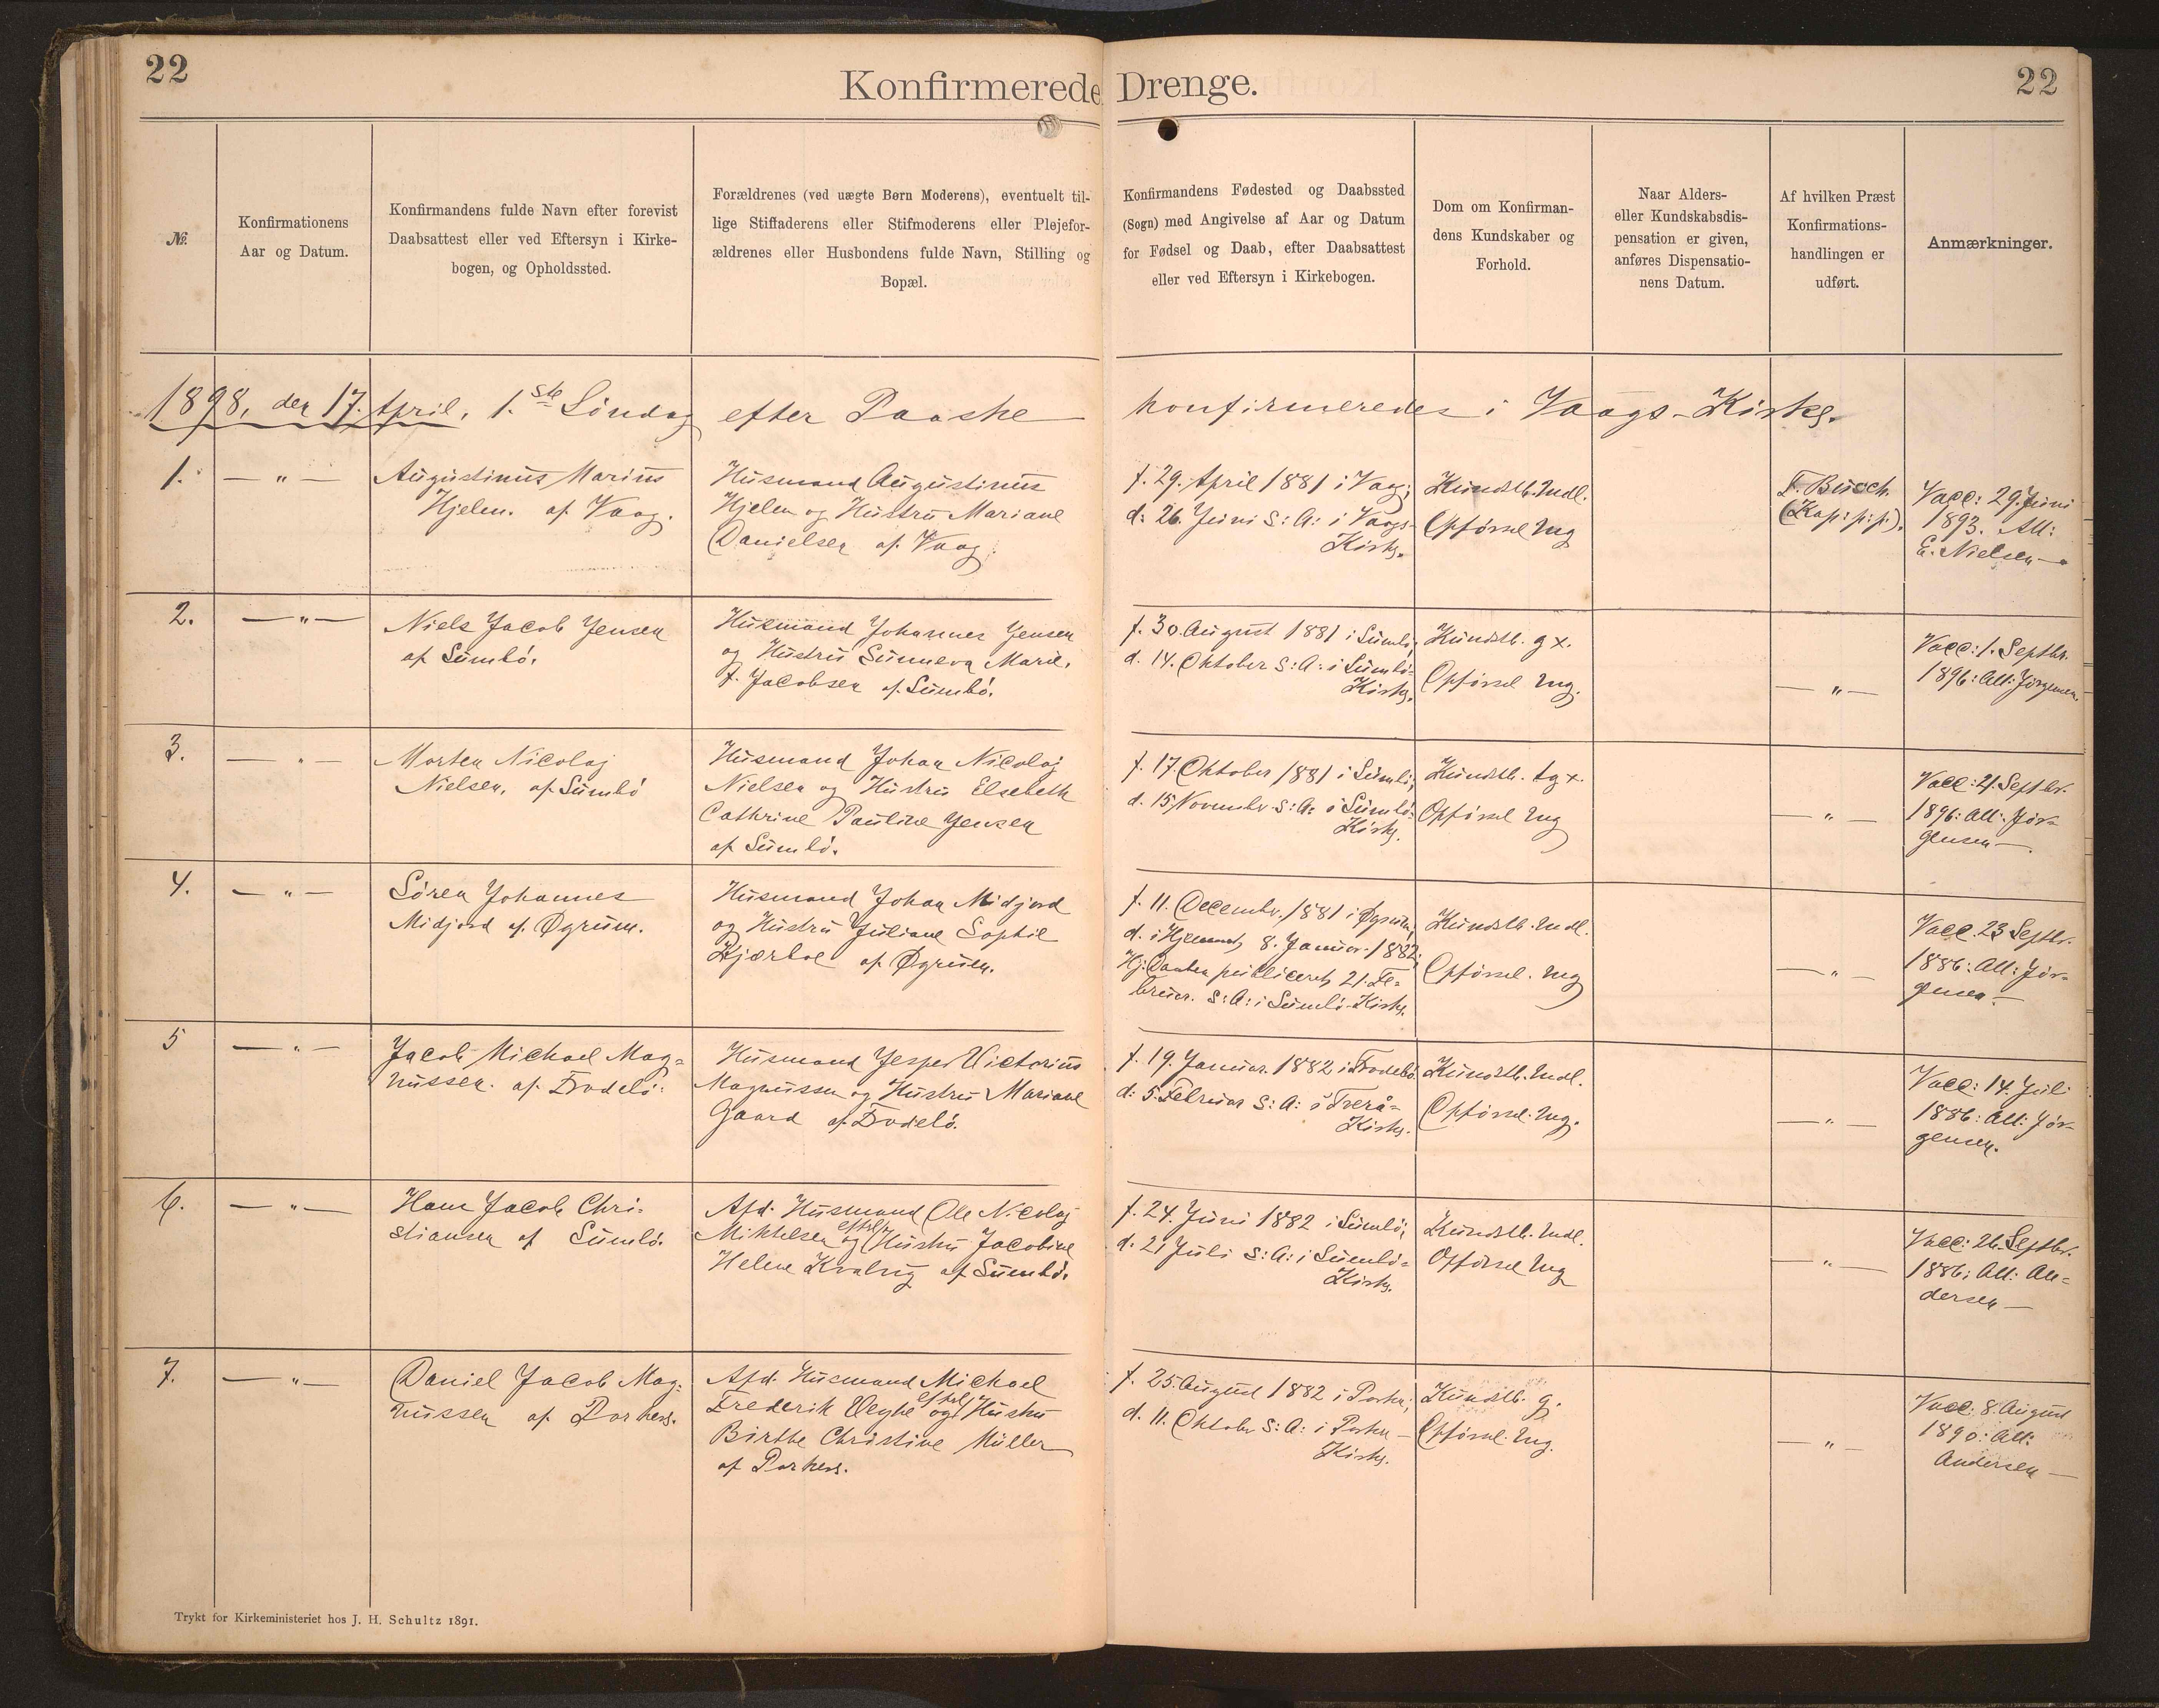 22
Konfirmerede Drenge.
22
№.
Konfirmationens
Aar og Datum.
Konfirmandens fulde Navn efter forevist
Daabsattest eller ved Eftersyn i Kirke-
bogen, og Opholdssted.
Forældrenes (ved uægte Børn Moderens), eventuelt til-
lige Stiffaderens eller Stifmoderens eller Plejefor-
ældrenes eller Husbondens fulde Navn, Stilling og
Bopæl.
Konfirmandens Fødested og Daabssted
(Sogn) med Angivelse af Aar og Datum
for Fødsel og Daab, efter Daabsattest
eller ved Eftersyn i Kirkebogen.
Dom om Konfirman-
dens Kundskaber og
Forhold.
Naar Alders-
eller Kundskabsdis-
pensation er given,
anføres Dispensatio-
nens Datum.
Af hvilken Præst
Konfirmations-
handlingen er
udført.
Anmærkninger.
1898, den 17. April, 1.ste Söndag efter Paaske konfirmeredes i Vaags-Kirke.
1.
— " —
Augustinus Marius
Hjelm. af Vaag.
Husmand Augustinus
Hjelm og Hustru Mariane
Danielsen af Vaag.
f. 29. April 1881 i Vaag;
d: 26. Juni S: A: i Vaags-
Kirke.
Kundsk. Mdl.
Opförsel Mg
F. Busch.
(Kap: p: p:).
Vacc: 29. Juni
1893. Att:
E. Nielsen —
2.
— " —
Niels Jacob Jensen
af Sumbö.
Husmand Johannes Jensen
og Hustru Sunneva Marie,
f. Jacobsen af Sumbö.
f. 30. August 1881 i Sumbö,
d. 14. Oktober S: A: i Sumbö-
Kirke.
Kundsk. g x.
Opförsel mg.
— " —
Vacc: 1. Septbr.
1896: Att: Jörgensen.
3.
— " —
Morten Nicolaj
Nielsen, af Sumbö
Husmand Johan Nicolaj
Nielsen og Hustru Elsebeth
Cathrine Pauline Jensen
af Sumbö.
f. 17. Oktober 1881 i Sumbö;
d. 15 Novembr. S: A: i Sumbö-
Kirke.
Kundsk. tg x.
Opförsel Mg
— " —
Vacc: 21. Septbr.
1896: Att: Jör-
gensen —.
4.
— " —
Sören Johannes
Midjord af Øgrum.
Husmand Johan Midjord
og Hustru Juliane Sophie
Kjærbo af Øgrum.
f. 11. Decembr. 1881 i Øgrum,
d. i Hjemmet 8. Januar 1882;
Hj: Daaben publiceret 21. Fe-
bruar. S: A: i Sumbö-Kirke.
Kundsk. Mdl.
Opförsel. Mg
— " —
Vacc. 23 Septbr.
1886: Att: Jör-
gensen —
5
— " —
Jacob Michael Mag-
nussen. af Frodebö.
Husmand Jesper Victorius
Magnussen og Hustru Mariane
Gaard af Frodebö.
f. 19. Januar. 1882 i Frodebö.
d: 5. Februar S: A: i Tverå-
Kirke.
Kundsk. Mdl.
Opförsel. Mg.
— " —
Vacc: 14. Juli
1886: Att: Jör-
gensen.
6.
— " —
Hans Jacob Chri-
stiansen af Sumbö.
Afd. Husmand Ole Nicolaj
Mikkelsen og efterl. Hustru Jacobine
Helene af Sumbö.
f. 24. Juni 1882 i Sumbö;
d. 21 Juli S: A: i Sumbö-
Kirke.
Kundsk. Mdl.
Opförsel Mg
— " —
Vacc: 26. Septbr.
1886: Att: An-
dersen —
7.
— " —
Daniel Jacob Mag-
nussen af Porkere.
Afd. Husmand Michael
Frederik og efterl. Hustru
Birthe Christine Müller
af Porkere.
f. 25. August 1882 i Porkere;
d. 11. Oktober S: A: i Porkere-
Kirke.
Kundsk. g.
Opförsel. Mg.
— " —
Vacc: 8. August
1890: Att:
Andersen —
Trykt for Kirkeministeriet hos J. H. Schultz 1891.